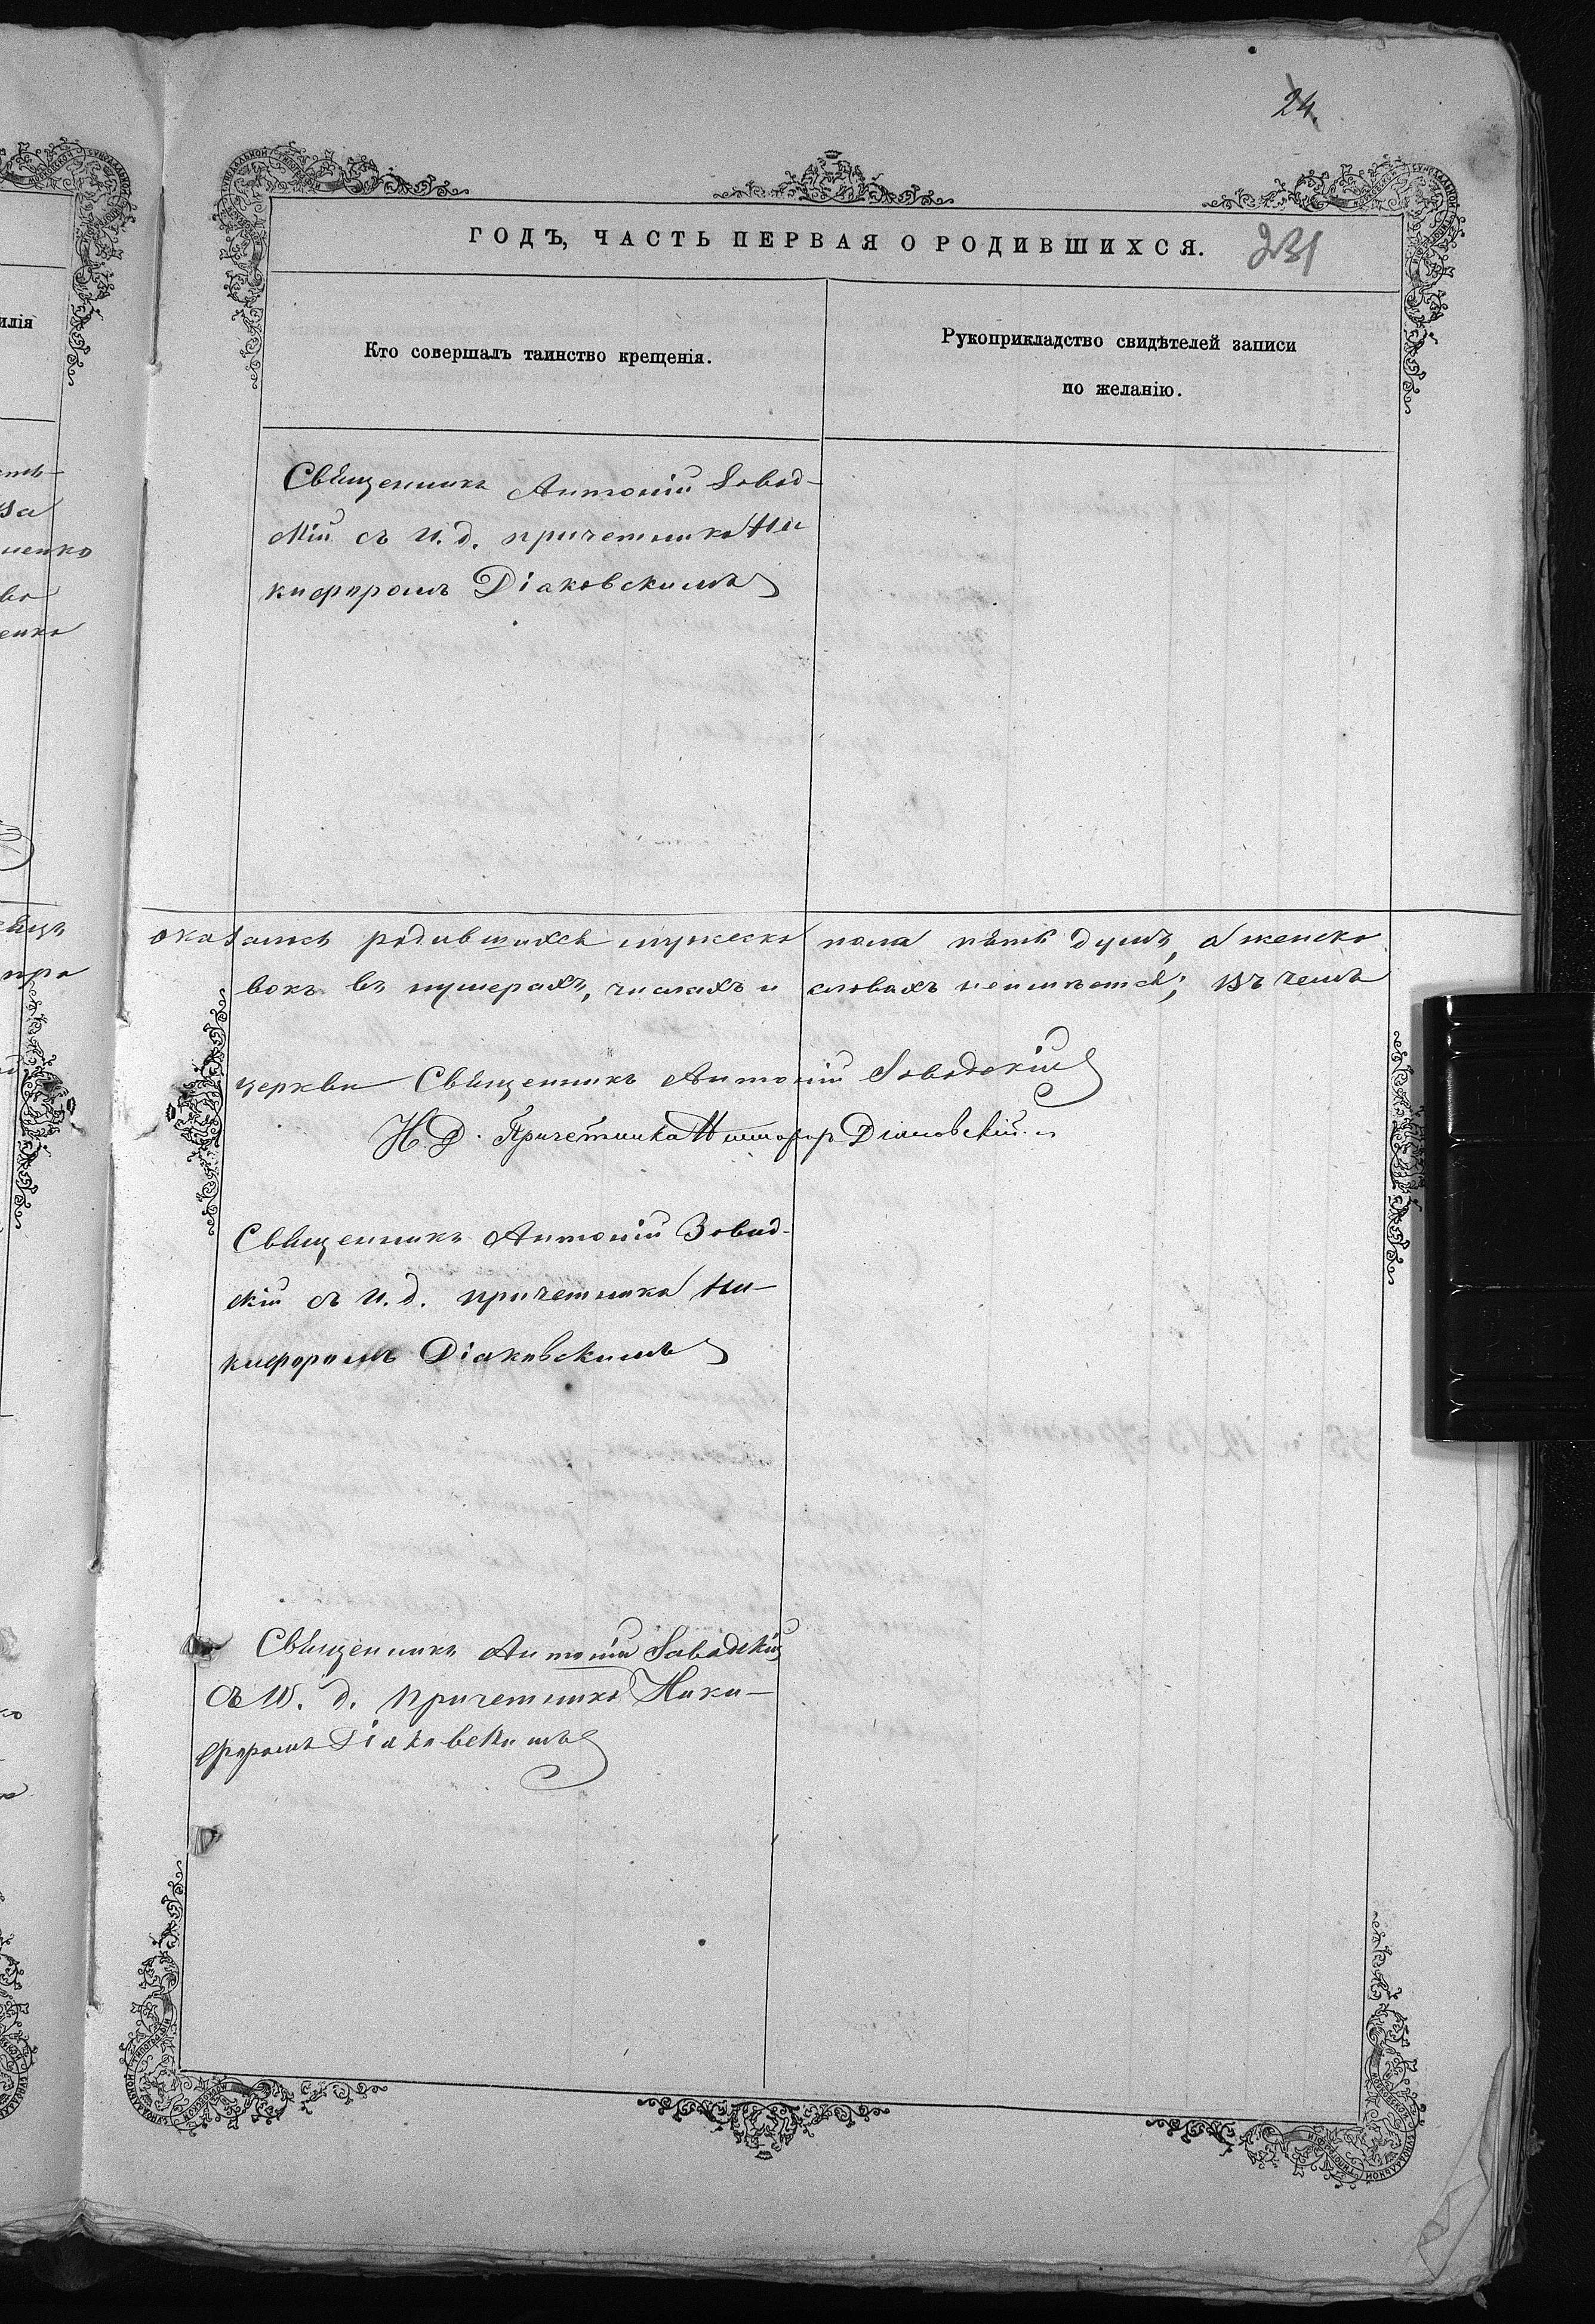 24.
ГОДЪ, ЧАСТЬ ПЕРВАЯ О РОДИВШИХСЯ. 231
илія
Кто совершалъ таинство крещенія.
Рукоприкладство свидѣтелей записи
по желанію.
Священникъ Антоній Завад-
скій съ и. д. причетника Ни
кифоромъ Діаковскимъ
оказалось родившихся мужеска пола пять душъ, а женска
вокъ въ нумерахъ, числахъ и словахъ неимѣется; въ чемъ
церкви Священникъ Антоній Завадскій
И. Д. Причетника Никифоръ Діаковскій
Священникъ Антоній Завад-
скій съ и. д. причетника Ни-
кифоромъ Діаковскимъ
Священникъ Антоній Завадскій
съ и. д. причетника Ники-
форомъ Діаковскимъ